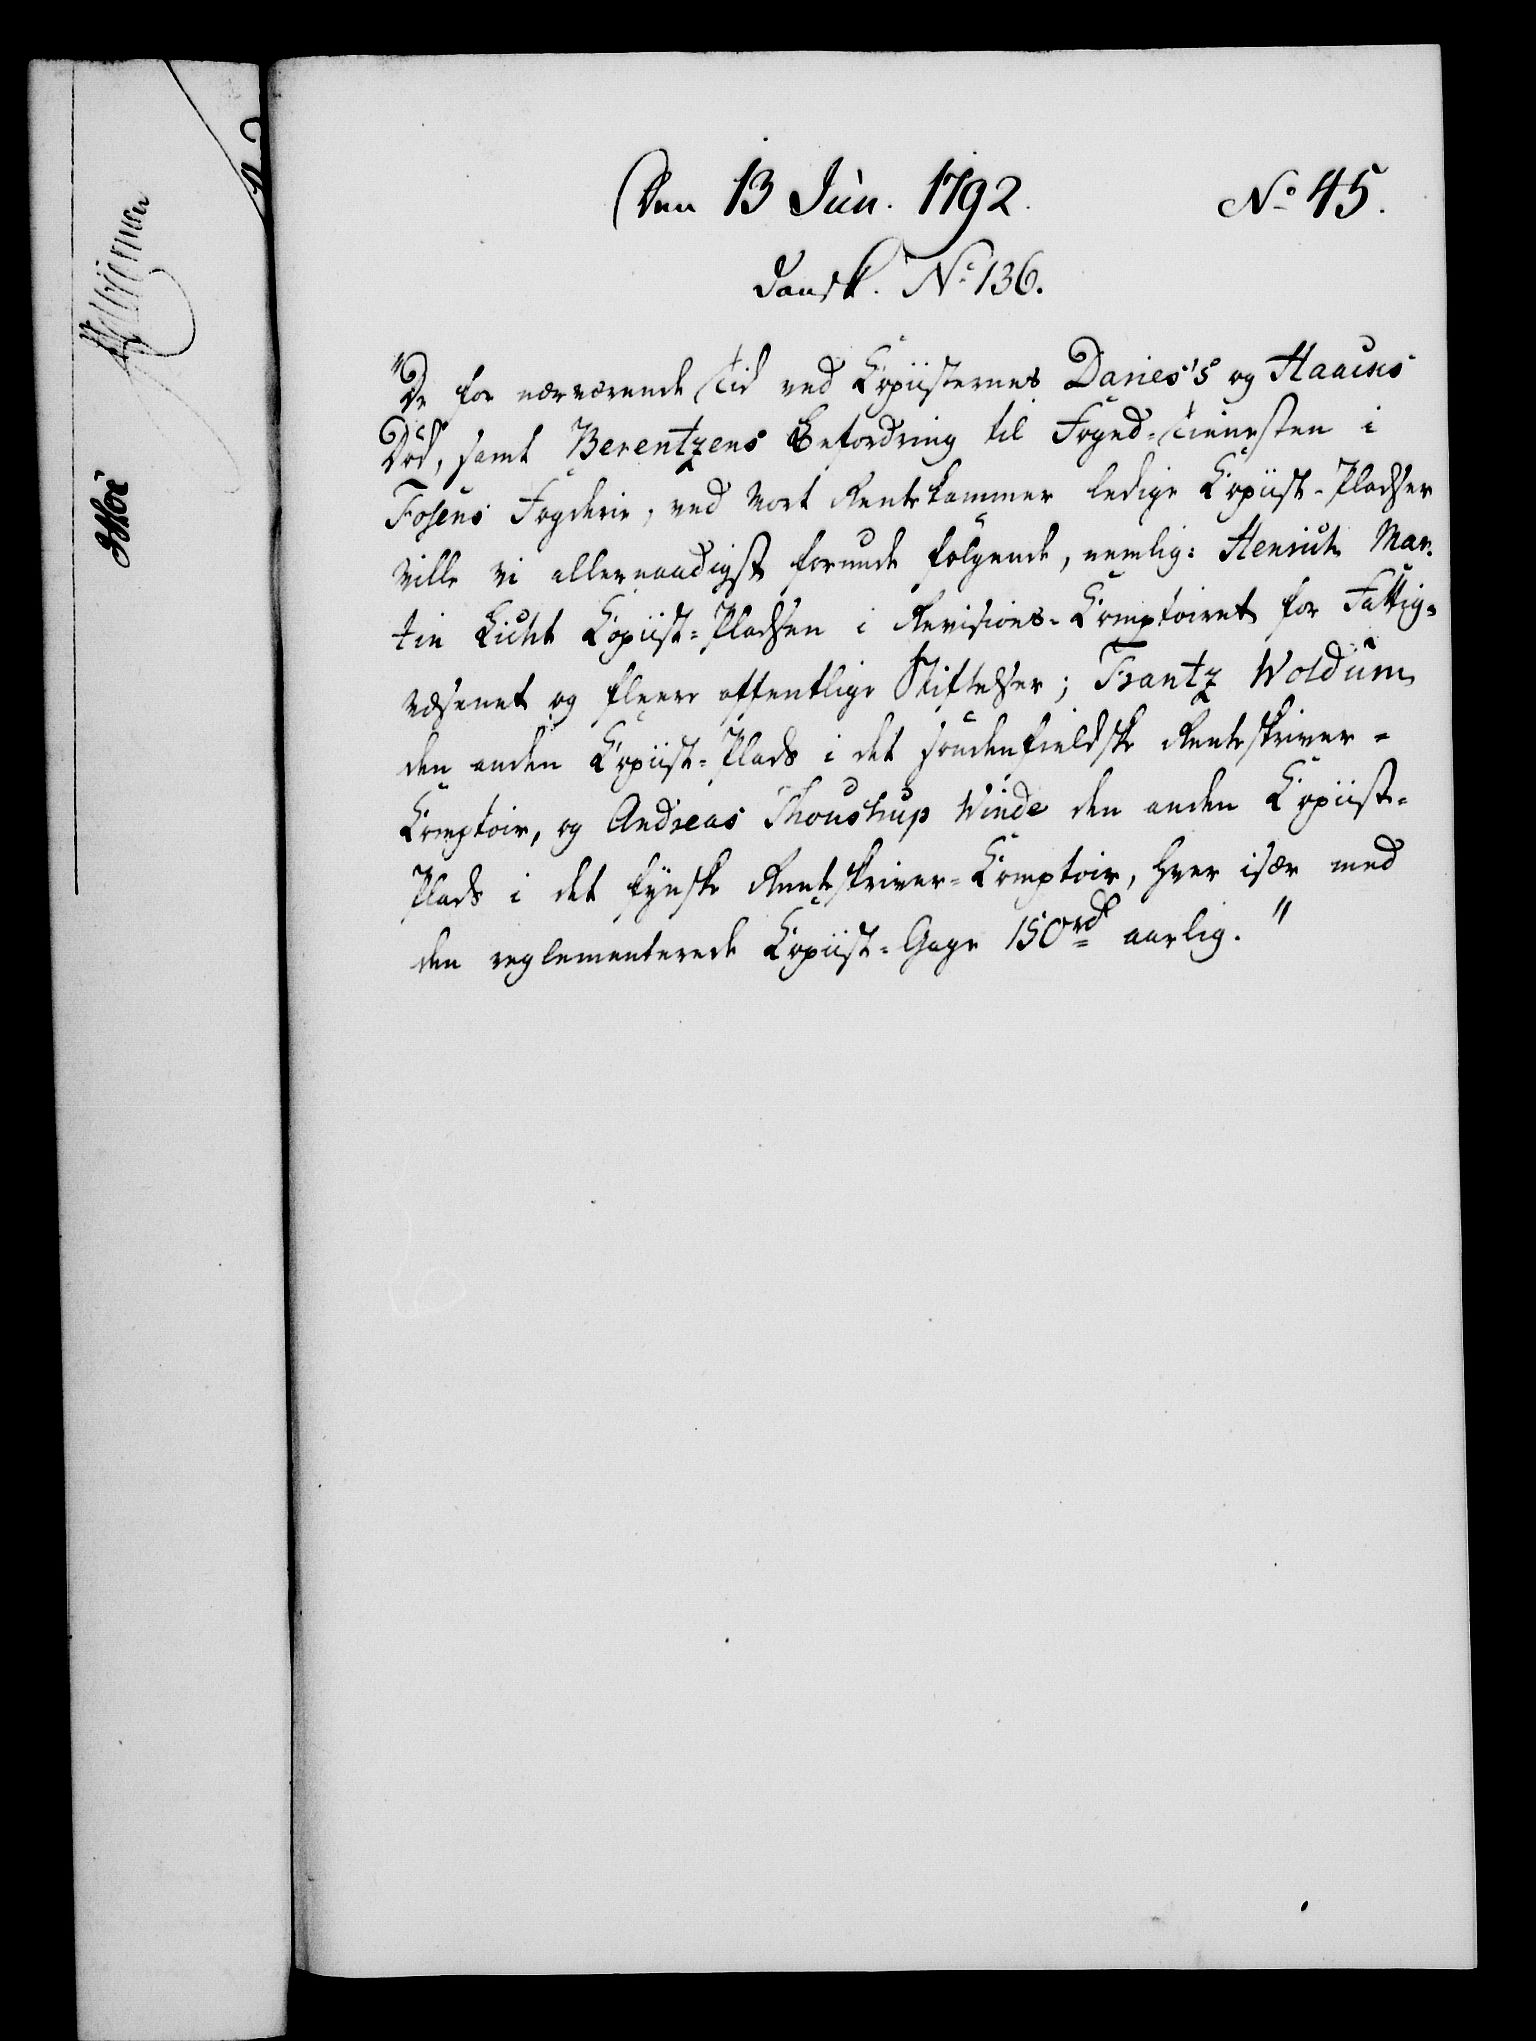 Den 13 Jun. 1792. No 45.
Dansk. No 136.
"De for nærværende Tid ved Kopiisternes Daries's og Haacks
Död, samt Berentzens Befordring til Foged-Tienesten i
Fosens Fogderie, ved Vort Rentekammer ledige Kopiist-Pladser
ville Vi allernaadigst forunde følgende, nemlig: Henrich Mar-
tin Licht Kopiist-Pladsen i Revisions-Comptoiret for Fattig-
væsenet og fleere offentlige Stiftelser; Frantz Woldum
den anden Kopiist-Plads i det søndenfieldske Renteskriver-
Comptoir, og Andreas Thoustrup Winde den anden Kopiist-
Plads i det fynske Renteskriver-Comptoir, hver især med
den reglementerede Kopiist-Gage 150 rd aarlig."